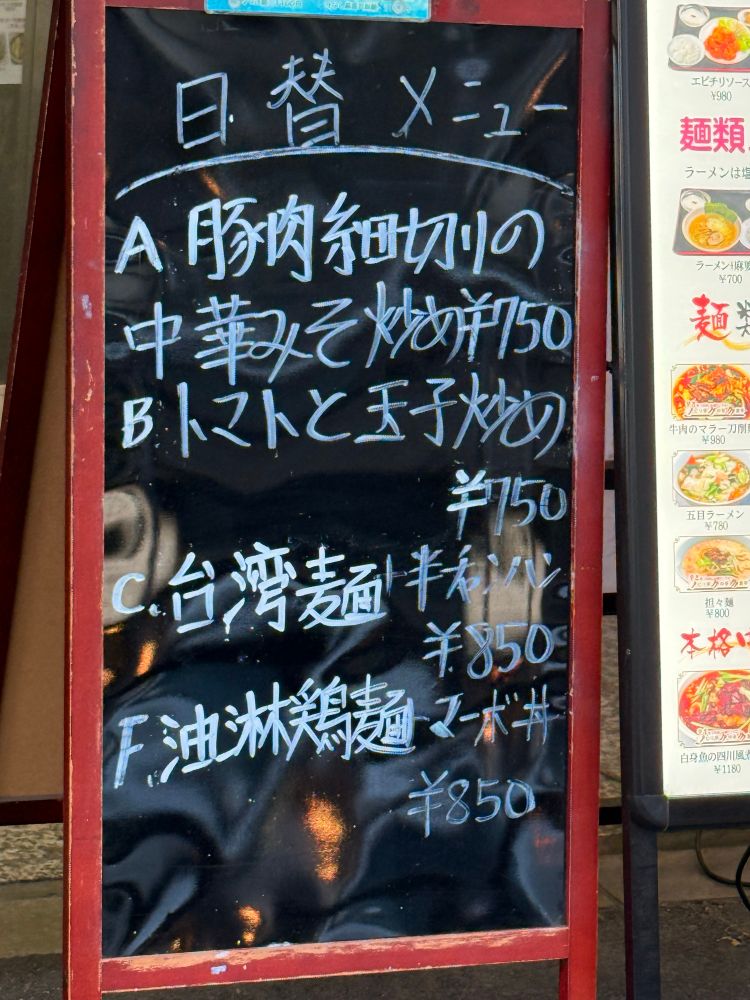 日替 メニュー
A 豚肉細切りの
中華みそ炒め¥750
B トマトと玉子炒め
¥750
C.台湾麺+半チャンハン
¥850
F.油淋鶏麺 マーボ丼
¥850
エビチリソース
¥980
麺類
ラーメンは塩
ラーメン+麻婆
¥700
麺
牛肉のマラー刀削
¥980
五目ラーメン
¥780
担々麺
¥800
本格
白身魚の四川風煮
¥1180